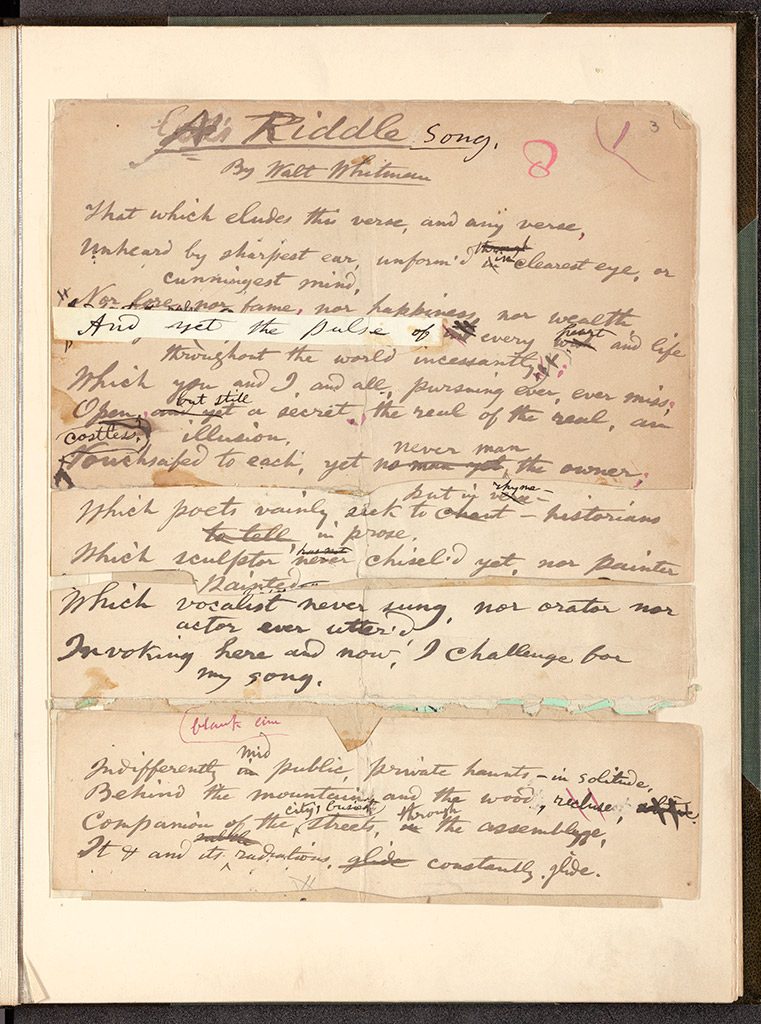 A Riddle Song.
1
3
By Walt Whitman
That which eludes this verse, and any verse,
Unheard by sharpest ear, unform'd in clearest eye, or
cunningest mind,
Nor lore nor fame, nor happiness nor wealth
And yet the pulse of every heart and life
throughout the world incessantly,
Which you and I, and all, pursuing ever, ever miss;
but still
Open, and yet a secret, the real of the real, an
costless, illusion,
never man
Vouchsafed to each, yet no man yet, the owner;
put in rhyme
Which poets vainly seek to – historians
to tell in prose,
Which sculptor never chisel'd yet, nor painter
painted
Which vocalist never sung, nor orator nor
actor ever utter'd
Invoking here and now, I challenge for
my song.
blank line
mid
Indifferently in public, private haunts – in solitude,
Behind the mountain and the wood, recluse,
city's busiest through
Companion of the streets, in the assemblage,
It & and its radiations, glide constantly glide.